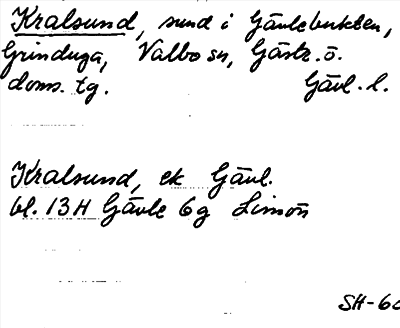 Kralsund, sund i Gävlebukten,
Grinduga, Valbo sn, Gästr. ö.
doms. tg. Gävl. l.
Kralsund, ek Gävl.
bl. 13H Gävle 6g Limön
SH-60